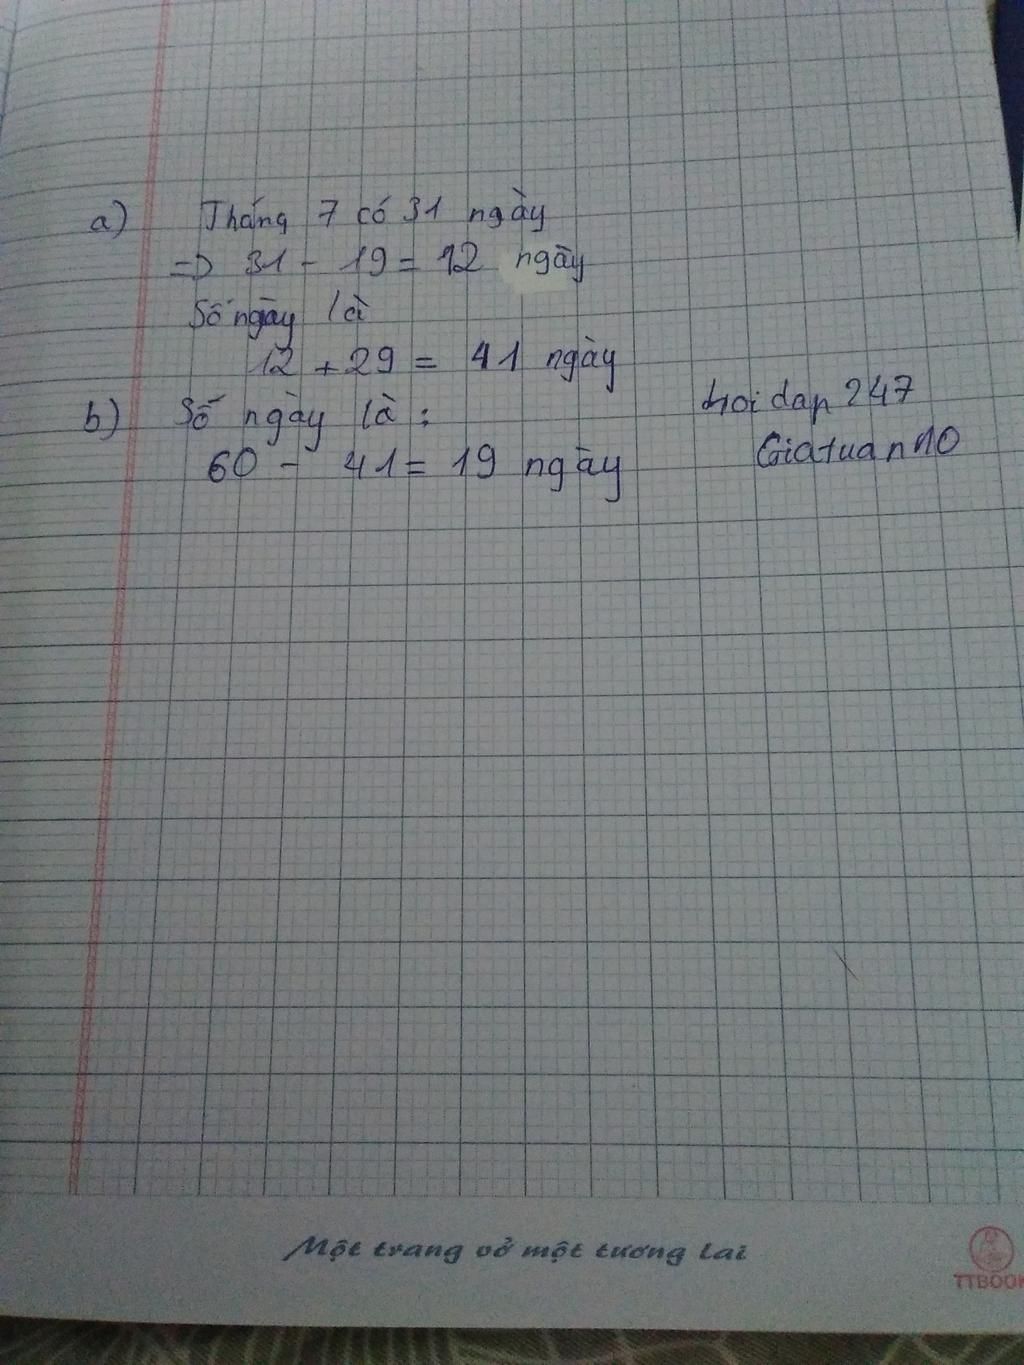 a) Tháng 7 có 31 ngày
=> 31 - 19 = 12 ngày
Số ngày là
12 + 29 = 41 ngày
b) Số ngày là :
60 - 41 = 19 ngày
hoidap 247
Giatuan10
Một trang vở một tương lai
TTBOOK